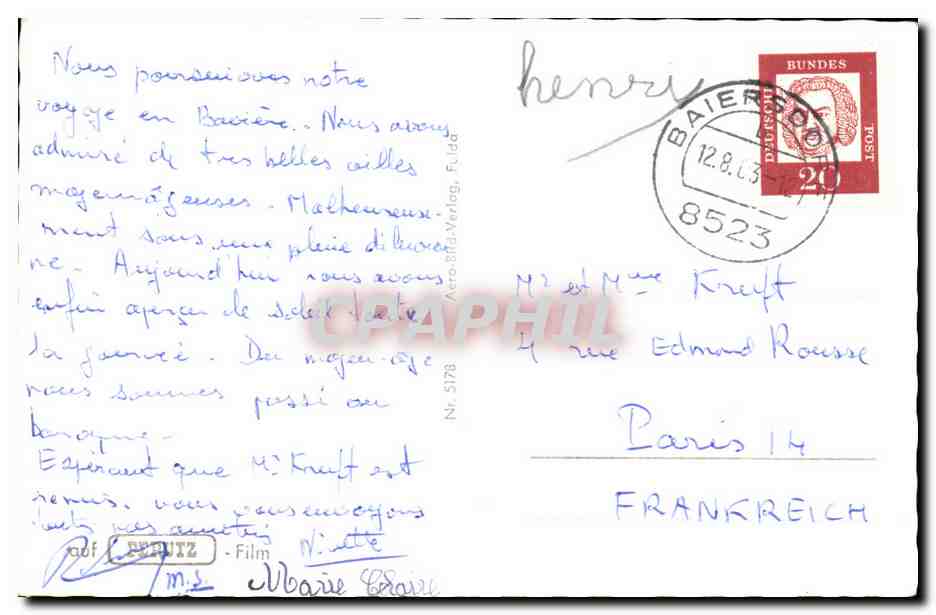 Nous poursuivons notre
voyage en Bavière. Nous avons
admiré de très belles villes
moyenâgeuses. Malheureuse-
ment sous une pluie diluvien
ne. Aujourd'hui nous avons
enfin aperçu le soleil toute
la journée. Du moyen-âge
nous sommes passé au
baroque.
Espérant que Mr Kreift est
remis, nous vous envoyons
toutes nos amitiés
Ninette
auf PERUTZ - Film
M.J.
Marie Claire
Nr. 5178 Aero-Bild-Verlag, Fulda
CPAPHIL
henry
BAIERSDORF
12.8.63-12
8523
DEUTSCHE BUNDES POST
20
Mr et Mme Kreift
4 rue Edmond Rousse
Paris 14
FRANKREICH